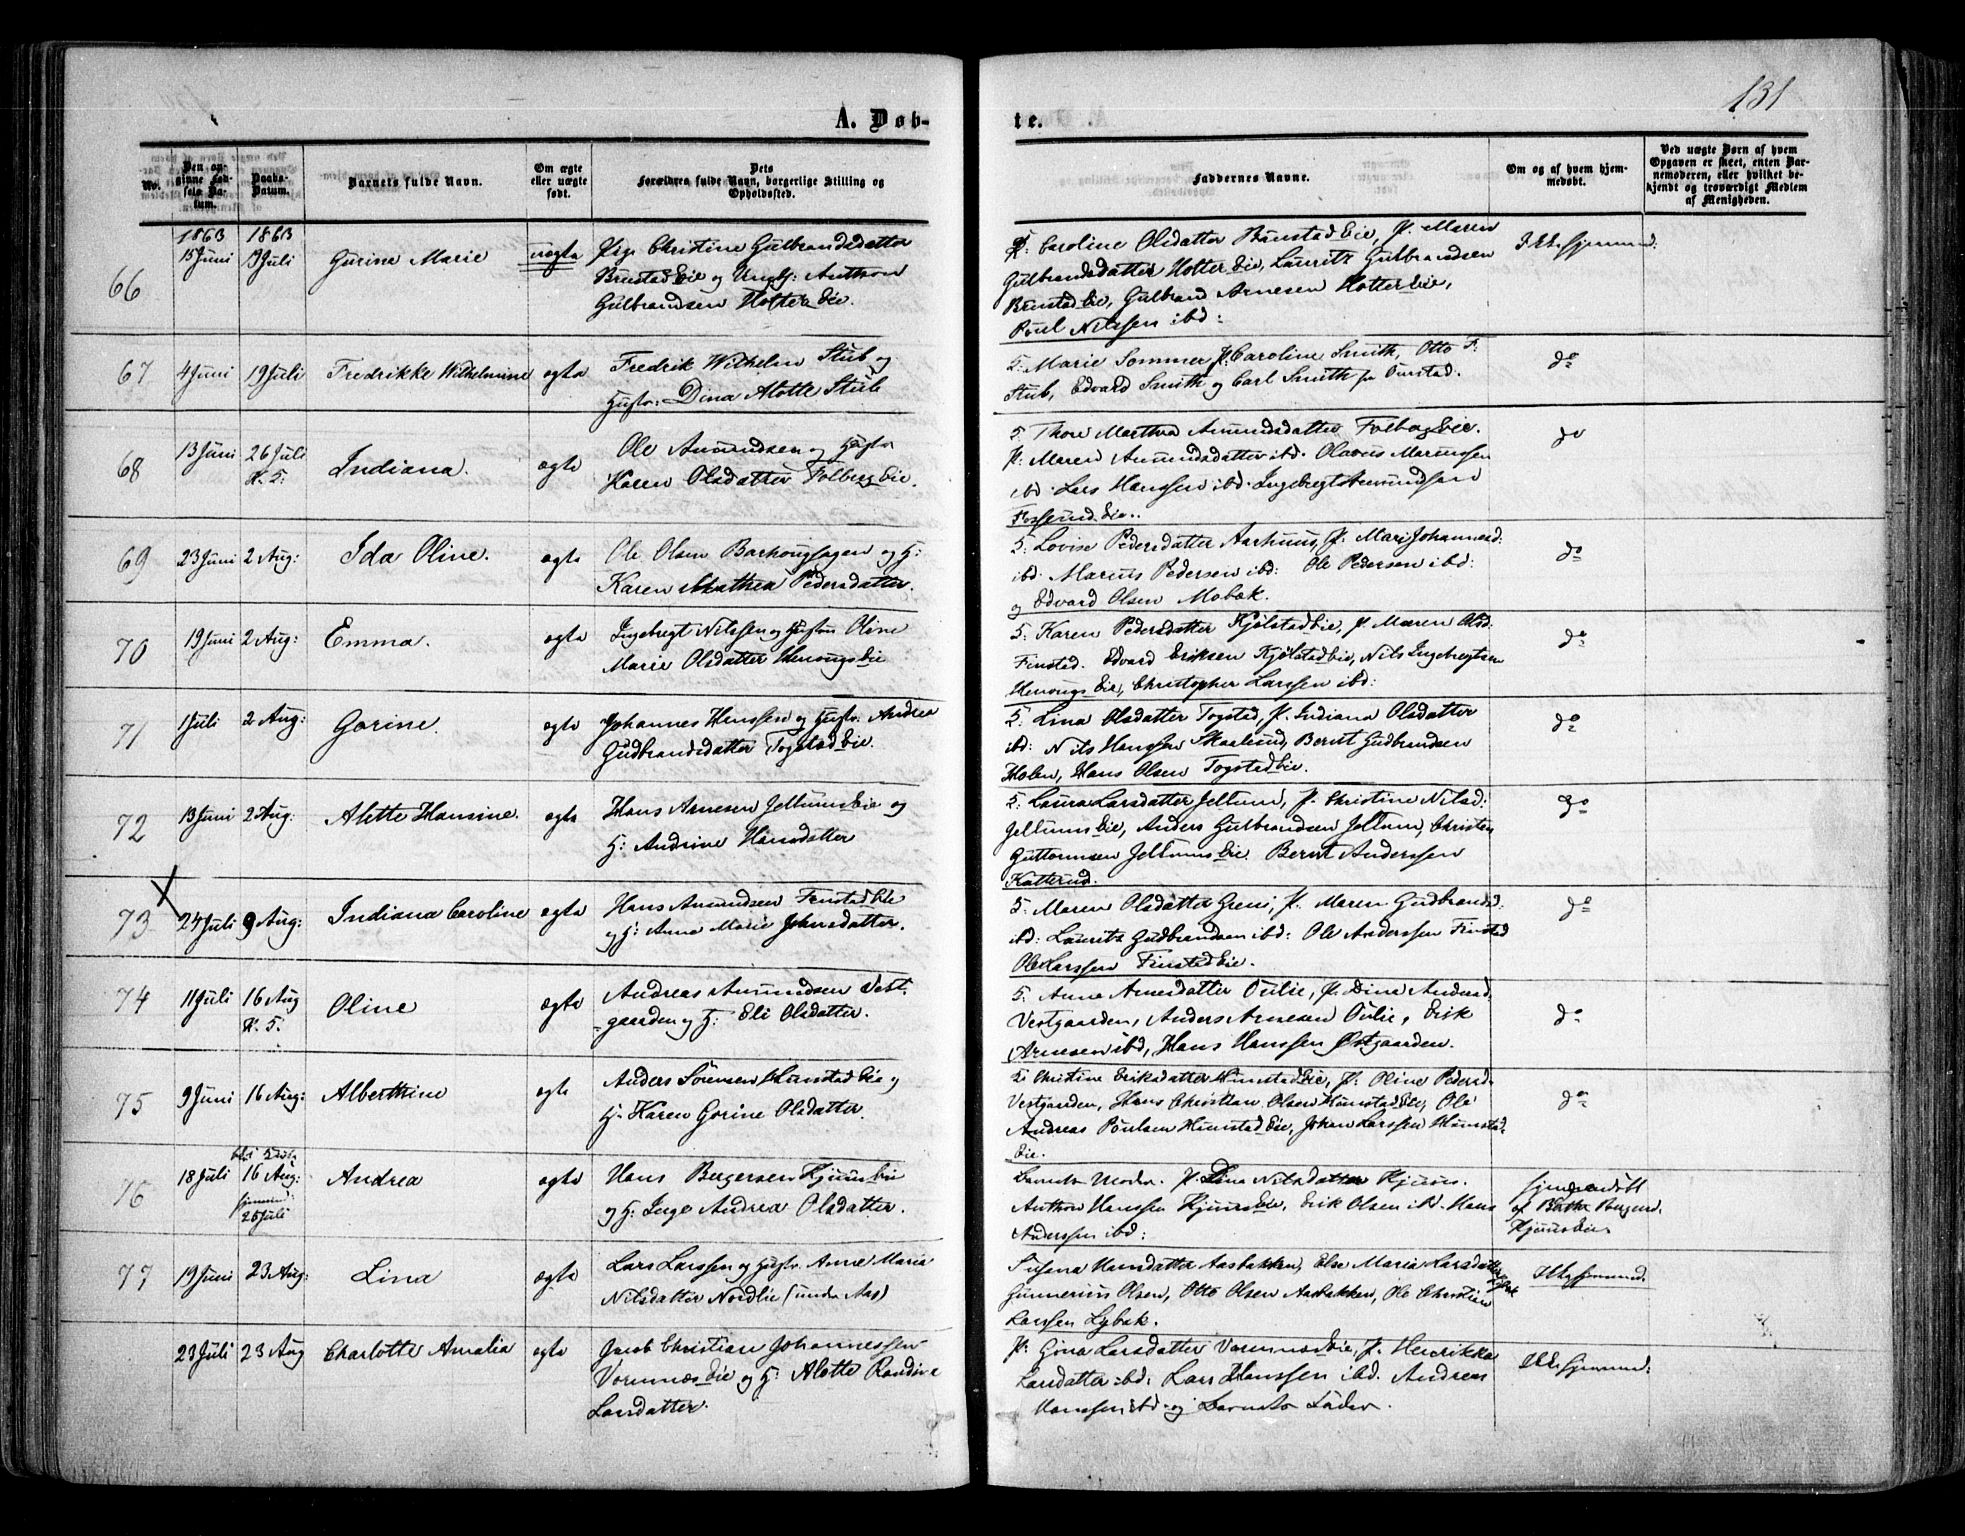 131
A. Døb-
te.
No.
Den op-
givne Fød-
sels Da-
tum.
Daabs-
Datum.
Barnets fulde Navn.
Om ægte
eller uægte
født.
Dets
Forældres fulde Navn, borgerlige Stilling og
Opholdssted.
Faddernes Navne.
Om og af hvem hjem-
medøbt.
Ved uægte Børn af hvem
Opgaven er skeet, enten Bar-
nemoderen, eller hvilket be-
kjendt og troværdigt Medlem
af Menigheden.
1863 1863
66 15 Juni 19 Juli Gurine Marie uægte Pige Christine Gulbrandsdatter
Brustad Eie og Ungk: Anthon
Gulbrandsen Holter Eie.
P: Caroline Olsdatter Brustad Eie, P. Maren
Gulbrandsdatter Holter Eie, Lauritz Gulbrandsen
Brustad Eie, Gulbrand Arnesen Holter Eie,
Poul Nilssen ibd:
Ikke hjemmed:
67 4 Juni 19 Juli Fredrikke Wilhelmine ægte Fredrik Wilhelm Stub og
Hustr: Dina Alette Stub
5: Marie Sommer P: Caroline Smith, Otto F.
Stub, Edvard Smith og Carl Smith fra Onstad.
do
68 13 Juni 26 Juli
K. 5: Indiana. ægte Ole Amundsen og Hustr
Karen Olsdatter Folberg Eie.
5: Thore Marthea Amundsdatter Folberg Eie.
P: Maren Amundsdatter ibd. Olavus Mariussen
ibd. Lars Hanssen ibd. Ingebregt Amundsen
Fossumd Eie.
do
69 23 Juni 2 Aug: Ida Oline. ægte Ole Olsen Barhoughagen og H:
Karen Mathea Pedersdatter.
5: Lovise Pedersdatter Aarhuus, P. Mari Johannesd:
ibd. Marius Pedersen ibd: Ole Pedersen ibd:
og Edvard Olsen Mobæk.
do
70 19 Juni 2 Aug: Emma. ægte Ingebregt Nilssen og Hustru Oline
Marie Olsdatter Henongs Eie
5: Karen Pedersdatter Kjølstad Eie, P. Maren Olsd:
Finstad. Edvard Eriksen Kjølstad Eie, Nils Ingebregtsen
Henongs Eie, Christopher Larssen ibd:
do
71 1 Juli 2 Aug: Gorine. ægte Johannes Hanssen og Hustr. Andrea
Gudbrandsdatter Togstad Eie.
5: Lina Olsdatter Togstad, P. Indiana Olsdatter
ibd: Nils Hanssen Skaalerud, Bernt Gudbrandsen
Holen, Hans Olsen Togstad Eie.
do
72 13 Juni 2 Aug: Alette Hansine. ægte Hans Arnesen Jeltums Eie og
H: Andrine Hansdatter
5: Laura Larsdatter Jeltum, P. Christine Nilsd:
Jeltums Eie, Anders Gulbrandsen Jeltum, Christen
Guttormsen Jeltums Eie Bernt Anderssen
Katterud.
do
73 24 Juli 9 Aug: Indiana Caroline ægte Hans Amundsen Finstad Eie
og H: Anne Marie Johnsdatter.
5. Maren Olsdatter Greni, P. Maren Gudbrandsd:
ibd: Lauritz Gudbrandsen ibd: Ole Anderssen Finstad
Ole Larssen Finstad Eie.
do
74 11 Juli 16 Aug
K. 5. Oline ægte Andreas Amundsen Vest-
gaarden og H: Eli Olsdatter.
5. Anne Arnesdatter Oulie, P. Dina Andersd.
Vestgaarden, Anders Arnesen Oulie, Erik
Arnesen ibd, Hans Hanssen Østgaarden.
do
75 9 Juni 16 Aug: Alberthine ægte Anders Sørensen Hunstad Eie og
H. Karen Gorine Olsdatter.
5: Christine Eriksdatter Hunstad Eie, P: Oline Pedersd.
Vestgaarden, Hans Christian Olsen Hunstad Eie, Ole
Andreas Poulsen Hunstad Eie, Johan Larssen Hunstad
Eie.
do
76 18 Juli 16 Aug:
hjemmed:
25 Juli Andrea ægte Hans Bergersen Kjuus Eie
og H: Inge Andrea Olsdatter.
Barnets Moder. P. Lina Nilsdatter Kjuus.
Anthon Hanssen Kjuus Eie, Erik Olsen ibd. Hans
Anderssen ibd:
hjemmedøbt
af Berthe Bergersd.
Kjuus Eie
77 19 Juni 23 Aug: Lina ægte Lars Larssen og Hustr. Anne Maria
Nilsdatter Nordlie (under Aas)
Susana Hansdatter Aasbakken, Else Maria Larsdatter
Gunnerius Olsen, Otto Olsen Aasbakken, Ole Christian
Larssen Lybæk.
Ikke hjemmed.
23 Juli 23 Aug Charlotte Amalia ægte Jacob Christian Johannessen
Vormnæs Eie og H: Alette Randine
Larsdatter.
P: Gina Larsdatter Vormnæs Eie, P. Henrikke
Larsdatter ibd: Lars Hanssen ibd. Andreas
Hanssen ibd. og Barnets Fader.
Ikke hjemmed: